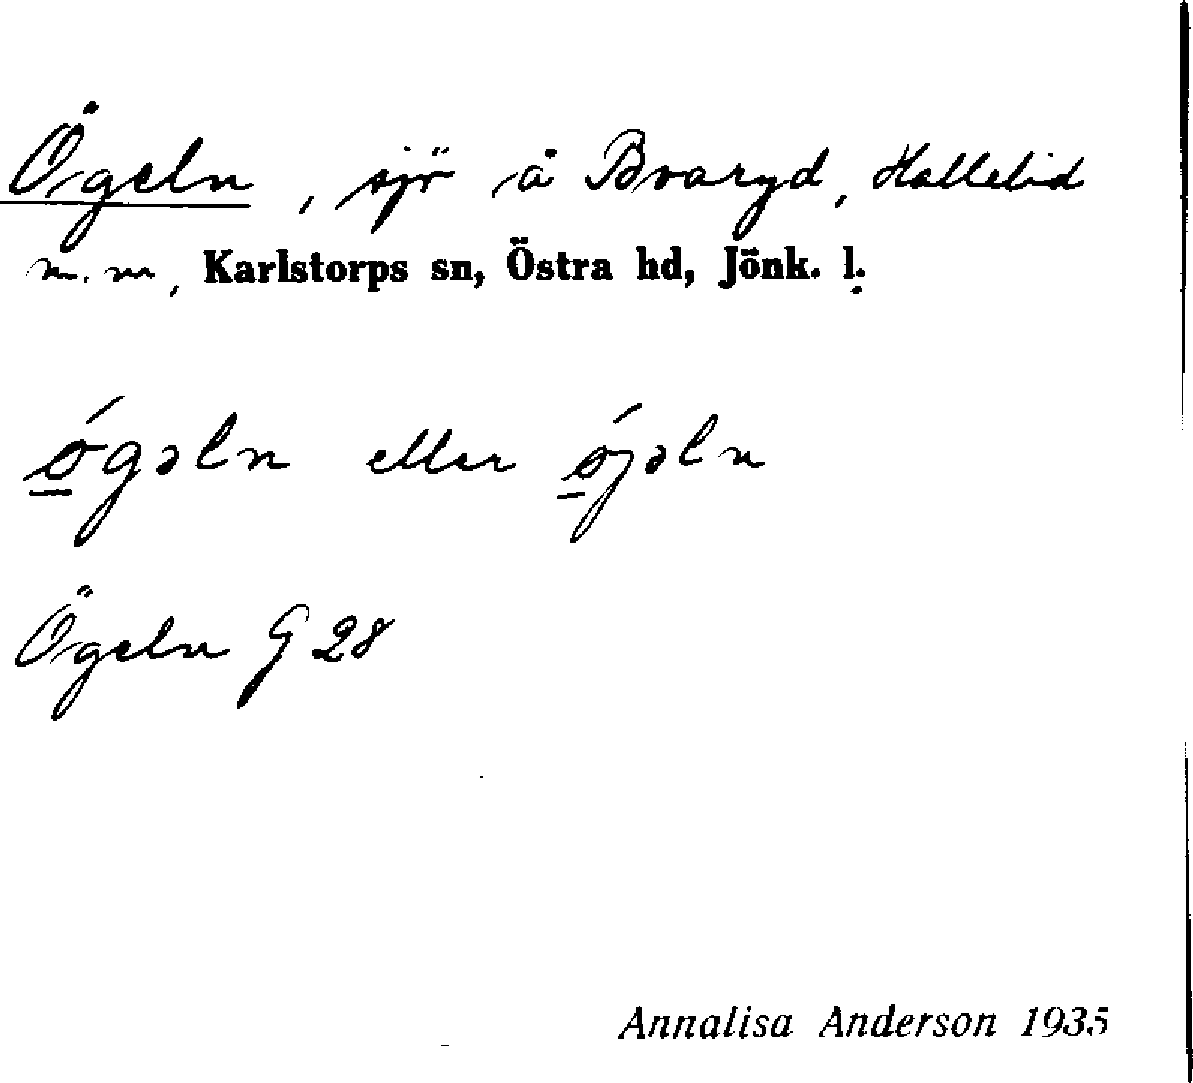 Ögeln, sjö å Bvaryd, Hallebid
m. m., Karlstorps sn, Östra hd, Jönk. l.
ǿgəln eller ǿjəln
Ögeln G 28
Annalisa Anderson 1935